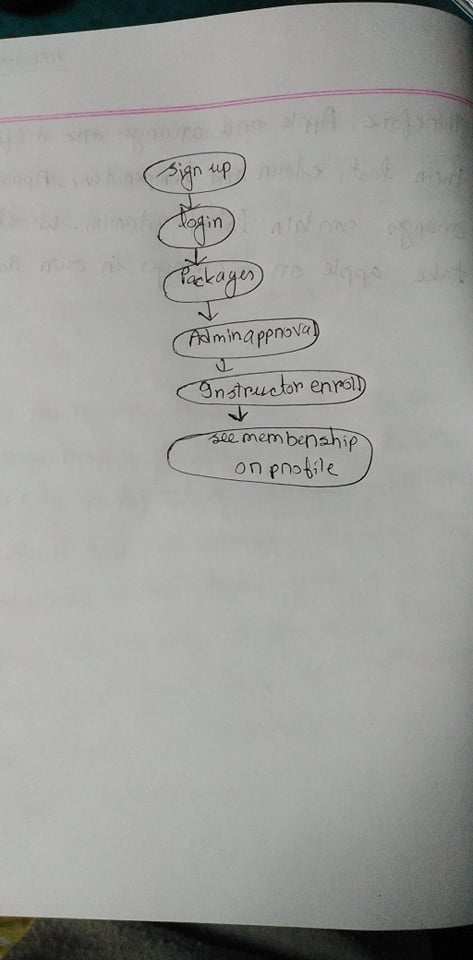 Sign up
login
Packages
Admin approval
Instructor enroll
see membership
on profile